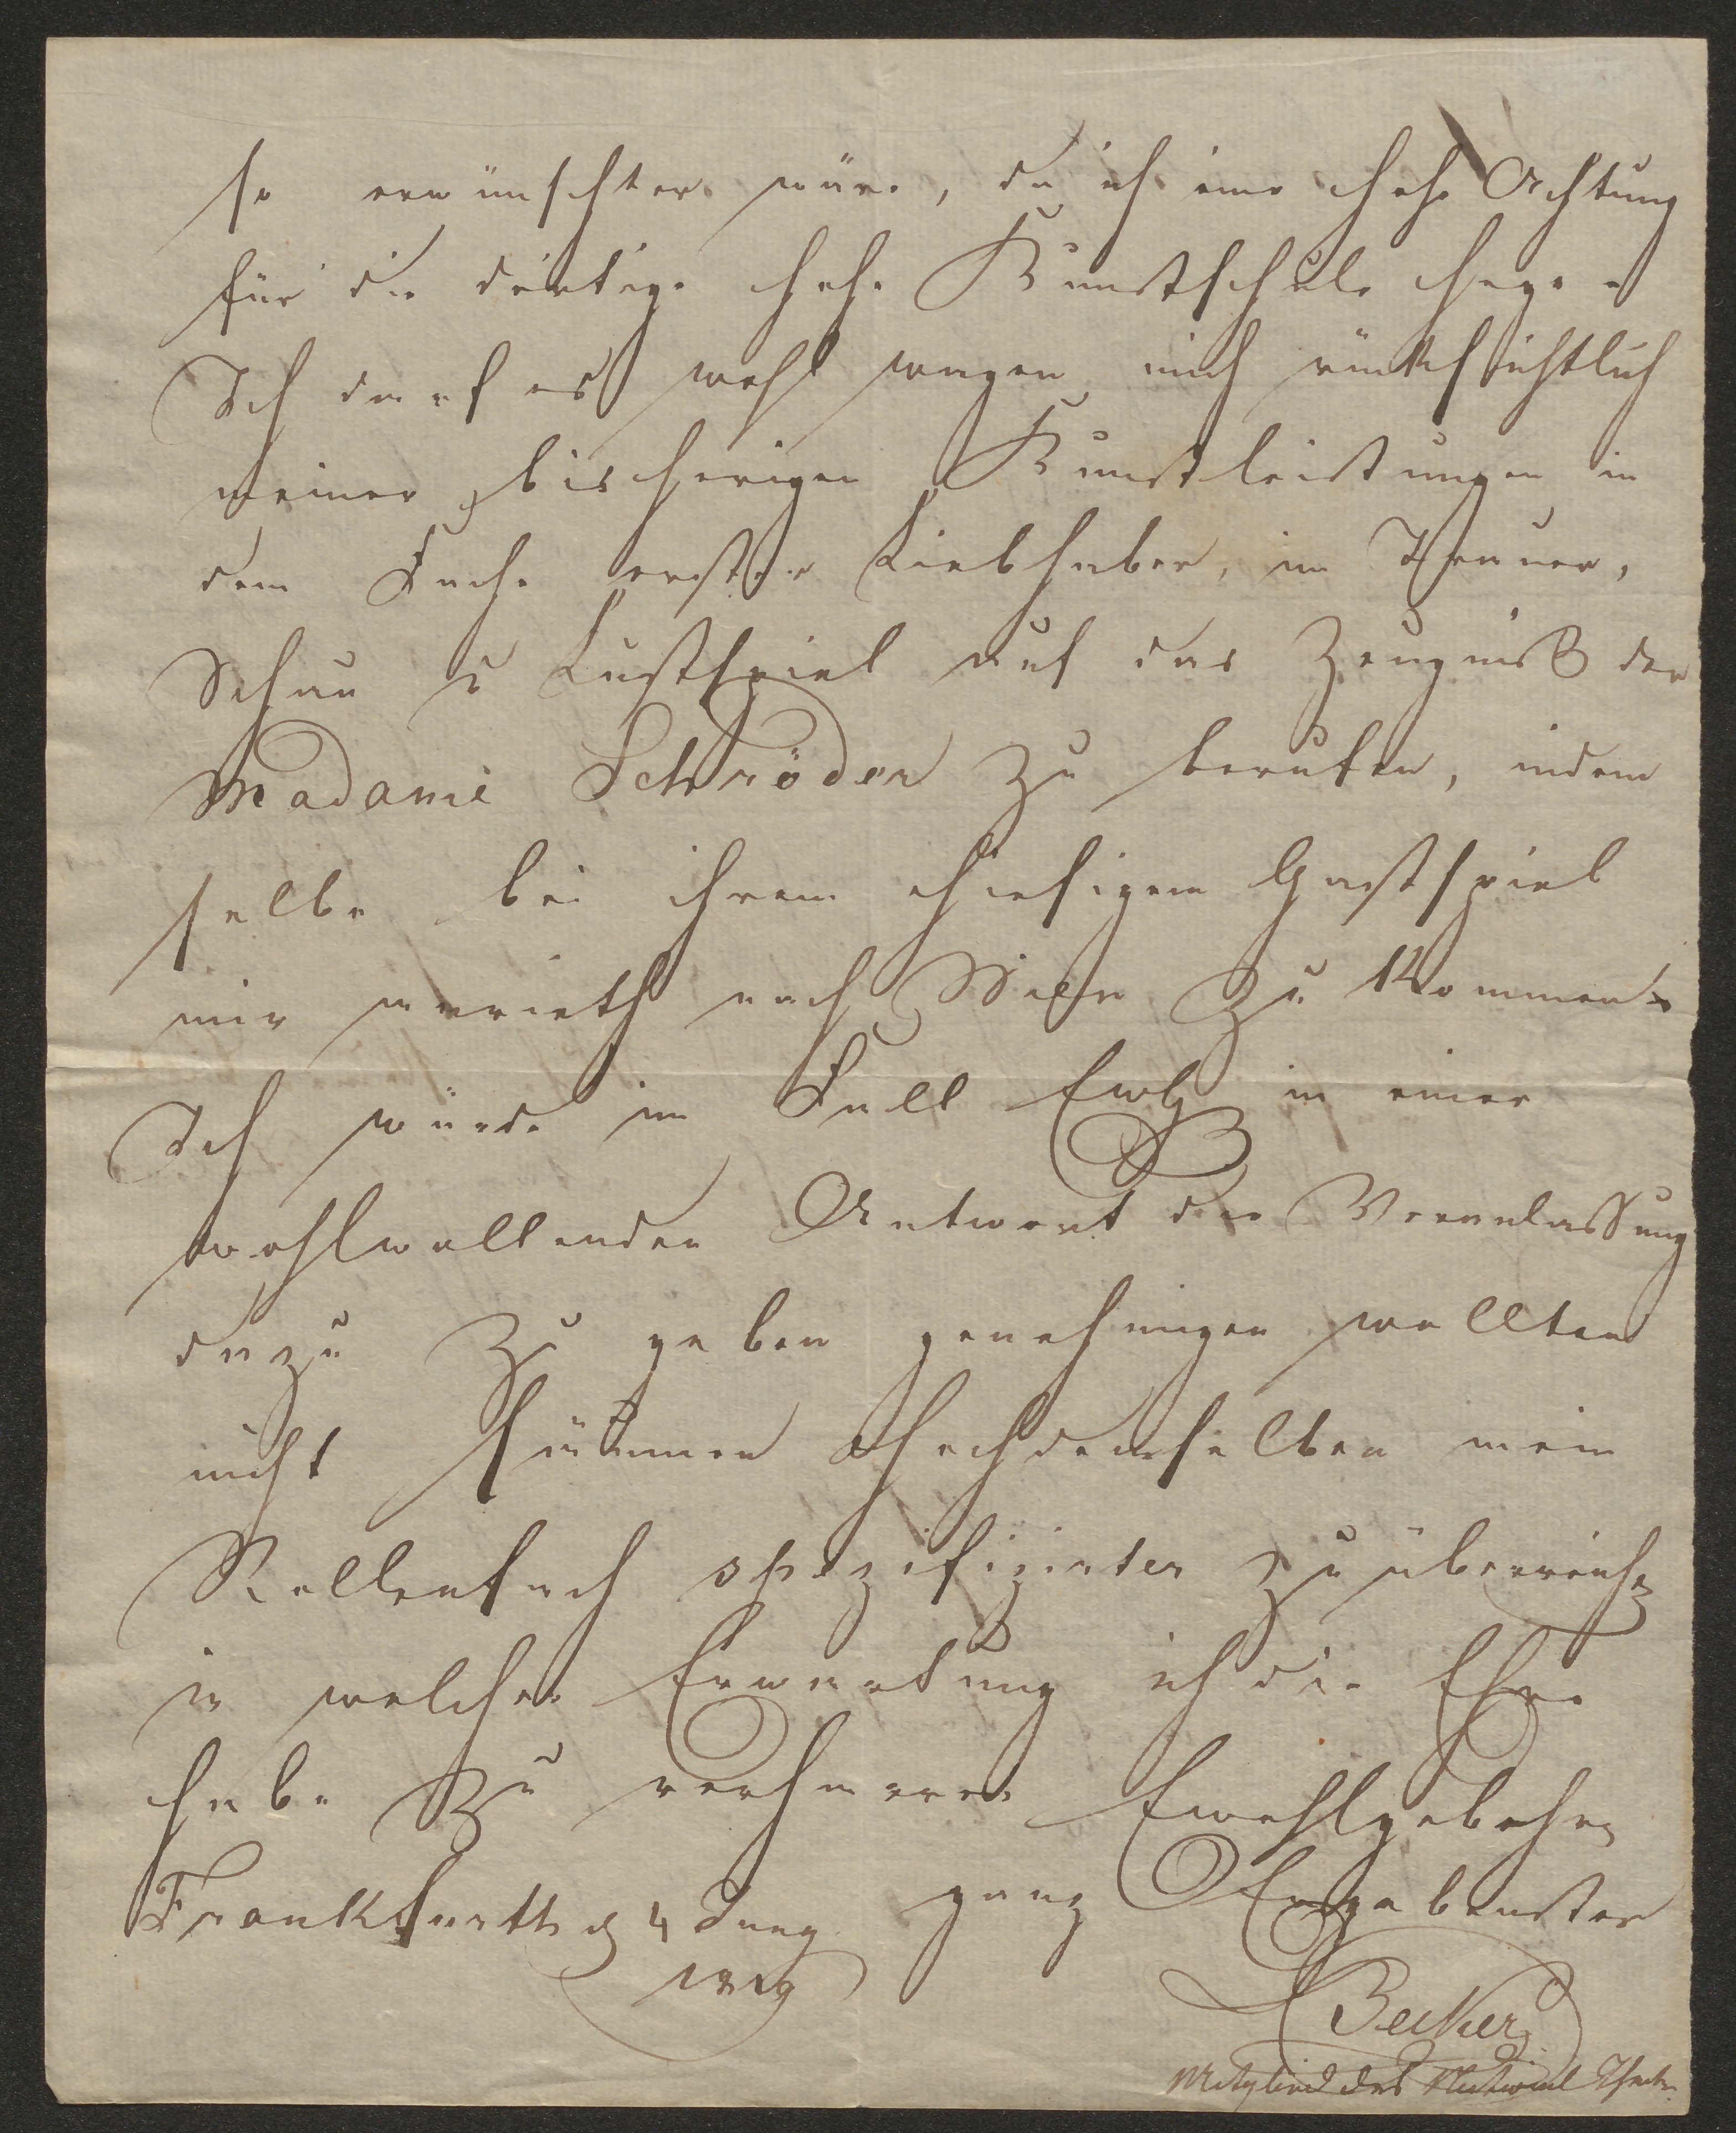 so erwünschter wäre, da ich eine hohe Achtung
für die dortige hohe Kunstschule hege.
Ich darf es wohl wagen mich rücksichtlich
meiner bisherigen Kunstleistungen in
dem Fache erster Liebhaber, im Trauer,
Schau u Lustspiel auf das Zeugniß der
Madame Schröder zu berufen, indem
selbe bei ihrem hiesigen Gastspiel
mir anrieth nach Wien zu kommen
Ich würde im Fall Ewlg in einer
wohlwollenden Antwort die Veranlassung
dazu zu geben genehmigen wollten
nicht säumen Hochdenselben mein
Rollenfach spezifizirter zu überreichen
in welcher Erwartung ich die Ehre
habe zu verharren Ewohlgebohrn
Frankfurth d 4 ganz Ergebenster
Becker
Mitglied des National Theater